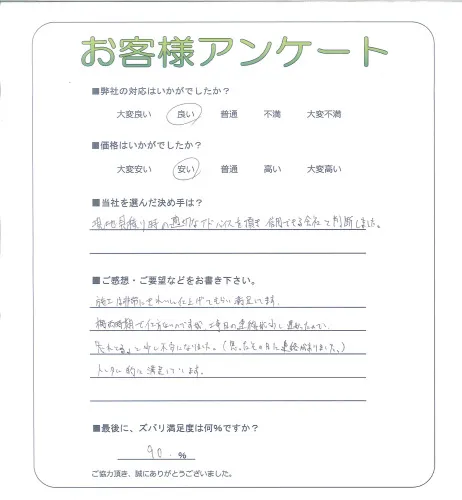 お客様アンケート
■弊社の対応はいかがでしたか?
大変良い 良い 普通 不満 大変不満
■価格はいかがでしたか?
大変安い 安い 普通 高い 大変高い
■当社を選んだ決め手は?
現地見積り時の適切なアドバイスを頂き 信用できる会社と判断しました。
■ご感想・ご要望などをお書き下さい。
施工は非常にきれいに仕上げてもらい満足してます。
梅雨時期で仕方ないのですが、工事日の連絡が少し遅れたので、
忘れてる?と少し不安になりました。(思った その日に連絡がありました。)
トータル的に満足しています。
■最後に、ズバリ満足度は何%ですか?
90.%
ご協力頂き、誠にありがとうございました。